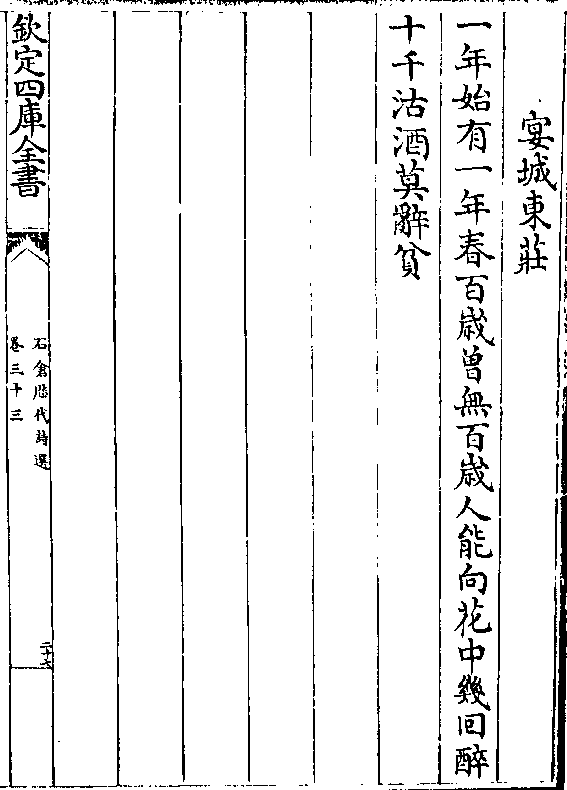 宴城東莊
一年始有一年春百歳曽無百歳人能向花中幾回醉
十千沽酒莫辭貧
欽定四庫全書
石倉歴代詩選
卷三十三
二十七